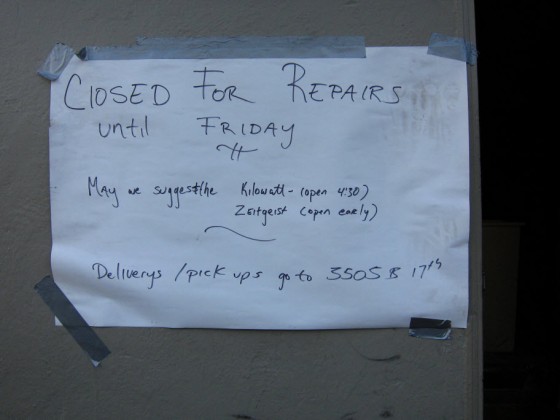 CLOSED FOR REPAIRS
until FRIDAY
May we suggest/the Kilowatt - (open 4:30)
Zeitgeist (open early)
Deliverys / pick ups go to 3505 B 17th